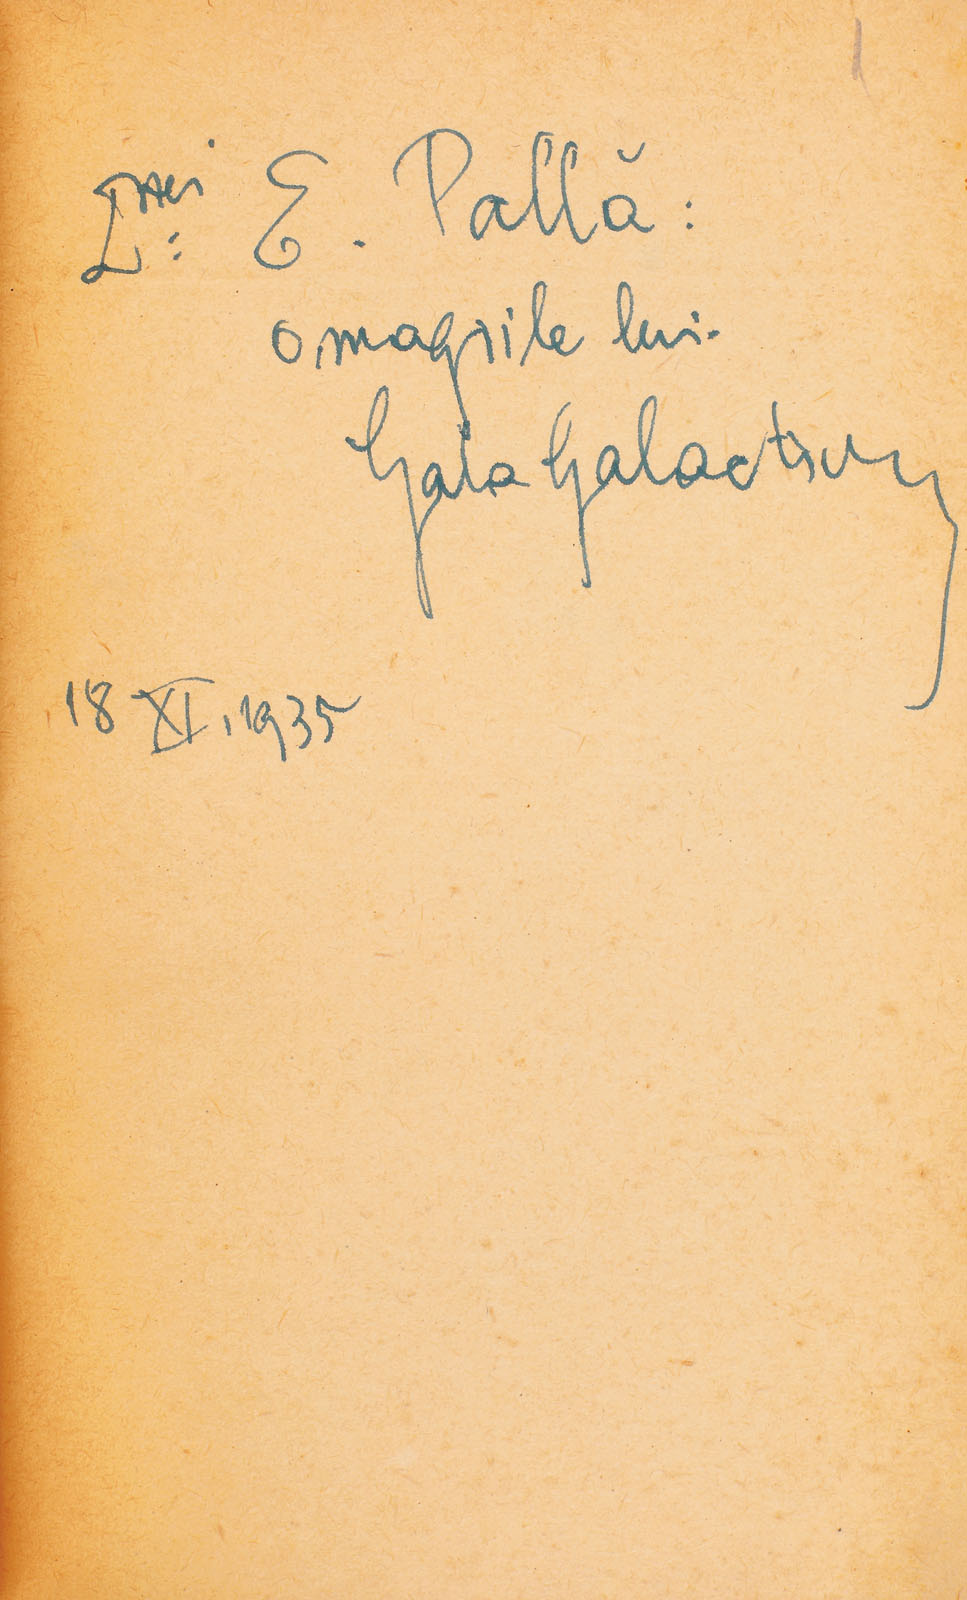 D:nei E. Pallă:
omagiile lui
Gala Galaction
18 XI, 1935